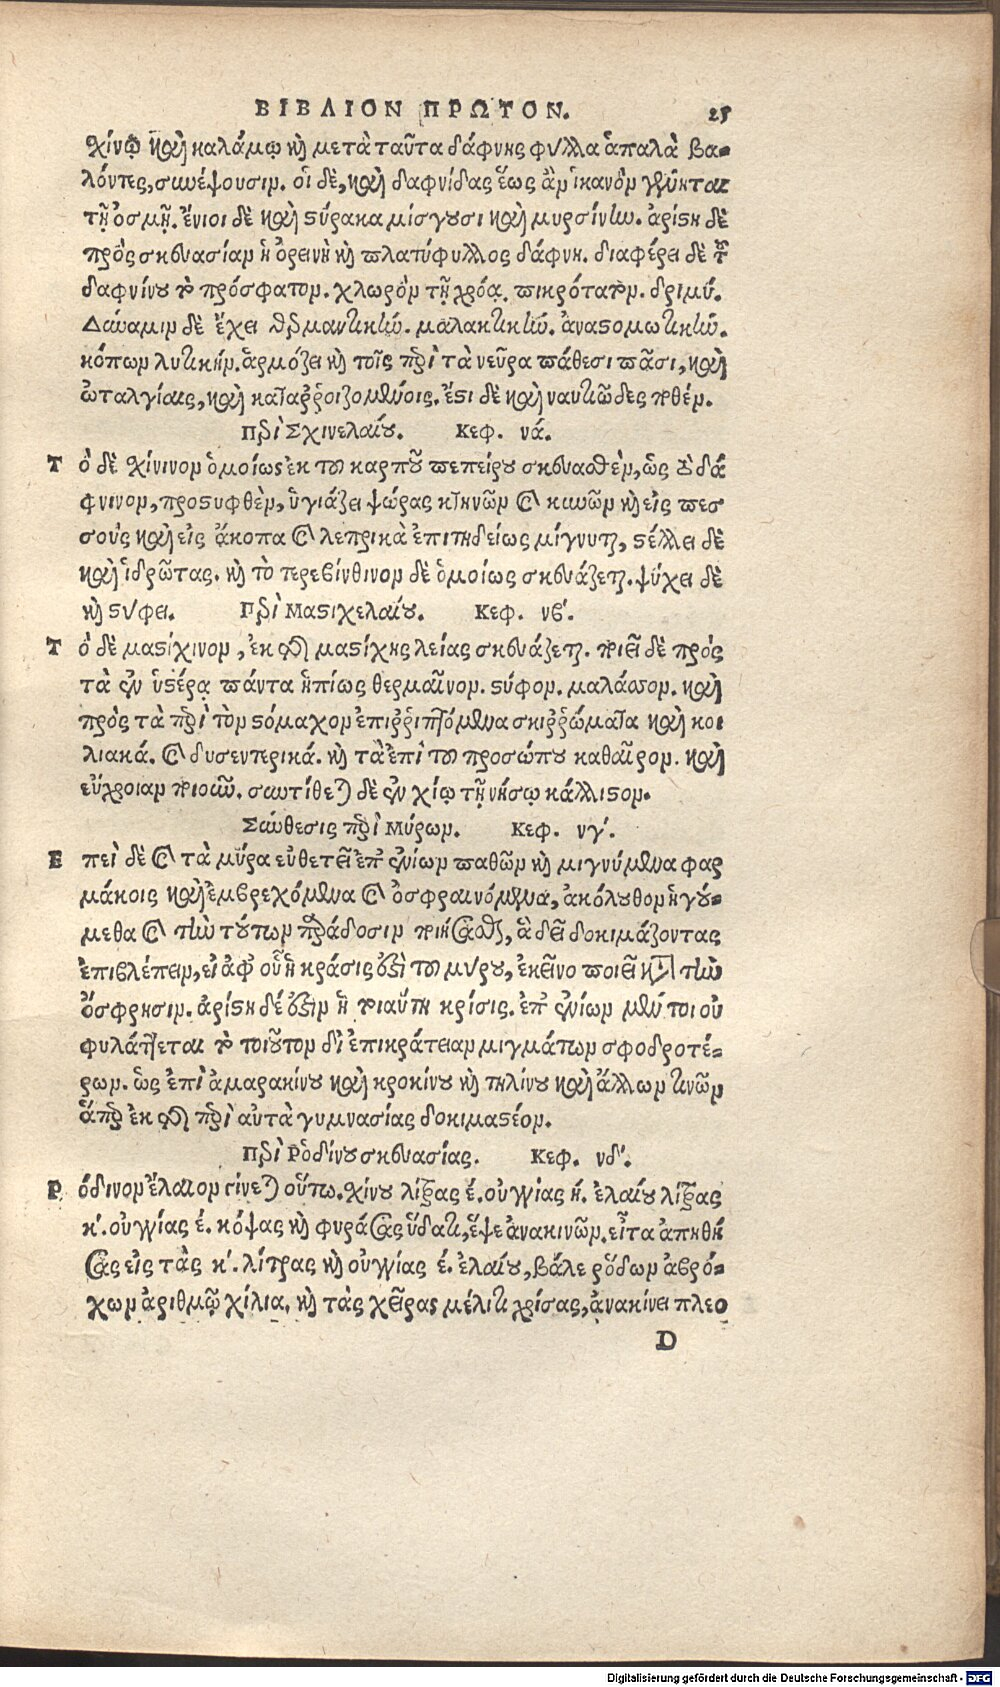 ΒΙΒΛΙΟΝ ΠΡΩΤΟΝ. 25
χίνῳ καὶ καλάμῳ καὶ μετὰ ταῦτα δάφνης φύλλα ἁπαλὰ βα-
λόντες, συνέψουσιν. οἱ δὲ, καὶ δαφνίδας ἕως ἂν ἱκανὸν γένηται
τῇ ὀσμῇ. ἔνιοι δὲ καὶ στύρακα μίσγουσι καὶ μυρσίνην. ἀρίστη δὲ
πρὸς σκευασίαν ἡ ὀρεινὴ καὶ πλατύφυλλος δάφνη. διαφέρει δὲ τοῦ
δαφνίνου τὸ πρόσφατον. χλωρὸν τῇ χρόᾳ. πικρότατον. δριμύ.
Δύναμιν δὲ ἔχει θερμαντικὴν. μαλακτικὴν. ἀναστομωτικὴν.
κόπων λυτικὴν. ἁρμόζει καὶ τοῖς περὶ τὰ νεῦρα πάθεσι πᾶσι, καὶ
ὠταλγίαις, καὶ καταῤῥοιζομένοις. ἔστι δὲ καὶ ναυτιῶδες ποθέν.
Περὶ Σχινελαίου. Κεφ. να΄.
Τὸ δὲ χίνινον ὁμοίως ἐκ τοῦ καρποῦ πεπείρου σκευασθὲν, ὡς τὸ δά
φνινον, προστυφθὲν, ὑγιάζει ψώρας κτηνῶν καὶ κυνῶν καὶ εἰς πεσ
σοὺς καὶ εἰς ἄκοπα καὶ λεπρικὰ ἐπιτηδείως μίγνυται, στέλλει δὲ
καὶ ἱδρῶτας. καὶ τὸ τερεβίνθινον δὲ ὁμοίως σκευάζεται. ψύχει δὲ
καὶ στύφει. Περὶ Μαστιχελαίου. Κεφ. νβ΄.
Τὸ δὲ μαστίχινον, ἐκ τῆς μαστίχης λείας σκευάζεται. ποιεῖ δὲ πρὸς
τὰ ἐν ὑστέρᾳ πάντα ἠπίως θερμαῖνον. στύφον. μαλάσσον. καὶ
πρὸς τὰ περὶ τὸν στόμαχον ἐπιῤῥιπτόμενα σκιῤῥώματα καὶ κοι
λιακά. καὶ δυσεντερικά. καὶ τὰ ἐπὶ τοῦ προσώπου καθαῖρον. καὶ
εὔχροιαν ποιοῦν. συντίθεται δὲ ἐν χίῳ τῇ νήσῳ κάλλιστον.
Σύνθεσις περὶ Μύρων. Κεφ. νγ΄.
Ἐπεὶ δὲ καὶ τὰ μύρα εὐθετεῖ ἐπ᾽ ἐνίων παθῶν καὶ μιγνύμενα φαρ
μάκοις καὶ ἐμβρεχόμενα καὶ ὀσφραινόμενα, ἀκόλουθον ἡγού-
μεθα καὶ τὴν τούτων παράδοσιν ποιήσασθαι, ἃ δεῖ δοκιμάζοντας
ἐπιβλέπειν, εἰ ἀφ᾽ οὗ ἡ κράσις ἐστὶ τοῦ μύρου, ἐκεῖνο ποιεῖ κατὰ τὴν
ὄσφρησιν. ἀρίστη δέ ἐστιν ἡ τοιαύτη κρίσις. ἐπ᾽ ἐνίων μέν τοι οὐ
φυλάττεται τὸ τοιοῦτον δι᾽ ἐπικράτειαν μιγμάτων σφοδροτέ-
ρων. ὡς ἐπὶ ἀμαρακίνου καὶ κροκίνου καὶ τηλίνου καὶ ἄλλων τινῶν
ἅπερ ἐκ τῆς περὶ αὐτὰ γυμνασίας δοκιμαστέον.
Περὶ Ῥοδίνου σκευασίας. Κεφ. νδ΄.
Ῥόδινον ἔλαιον γίνεται οὕτω. χίνου λίτρας έ. οὐγγίας ή. ἐλαίου λίτρας
κ΄. οὐγγίας έ. κόψας καὶ φυράσας ὕδατι, ἕψε ἀνακινῶν. εἶτα ἀπηθή
σας εἰς τὰς κ΄. λίτρας καὶ οὐγγίας έ. ἐλαίου, βάλε ῥόδων ἀβρό-
χων ἀριθμῷ χίλια, καὶ τὰς χεῖρας μέλιτι χρίσας, ἀνακίνει πλεο
D
Digitalisierung gefördert durch die Deutsche Forschungsgemeinschaft - DFG